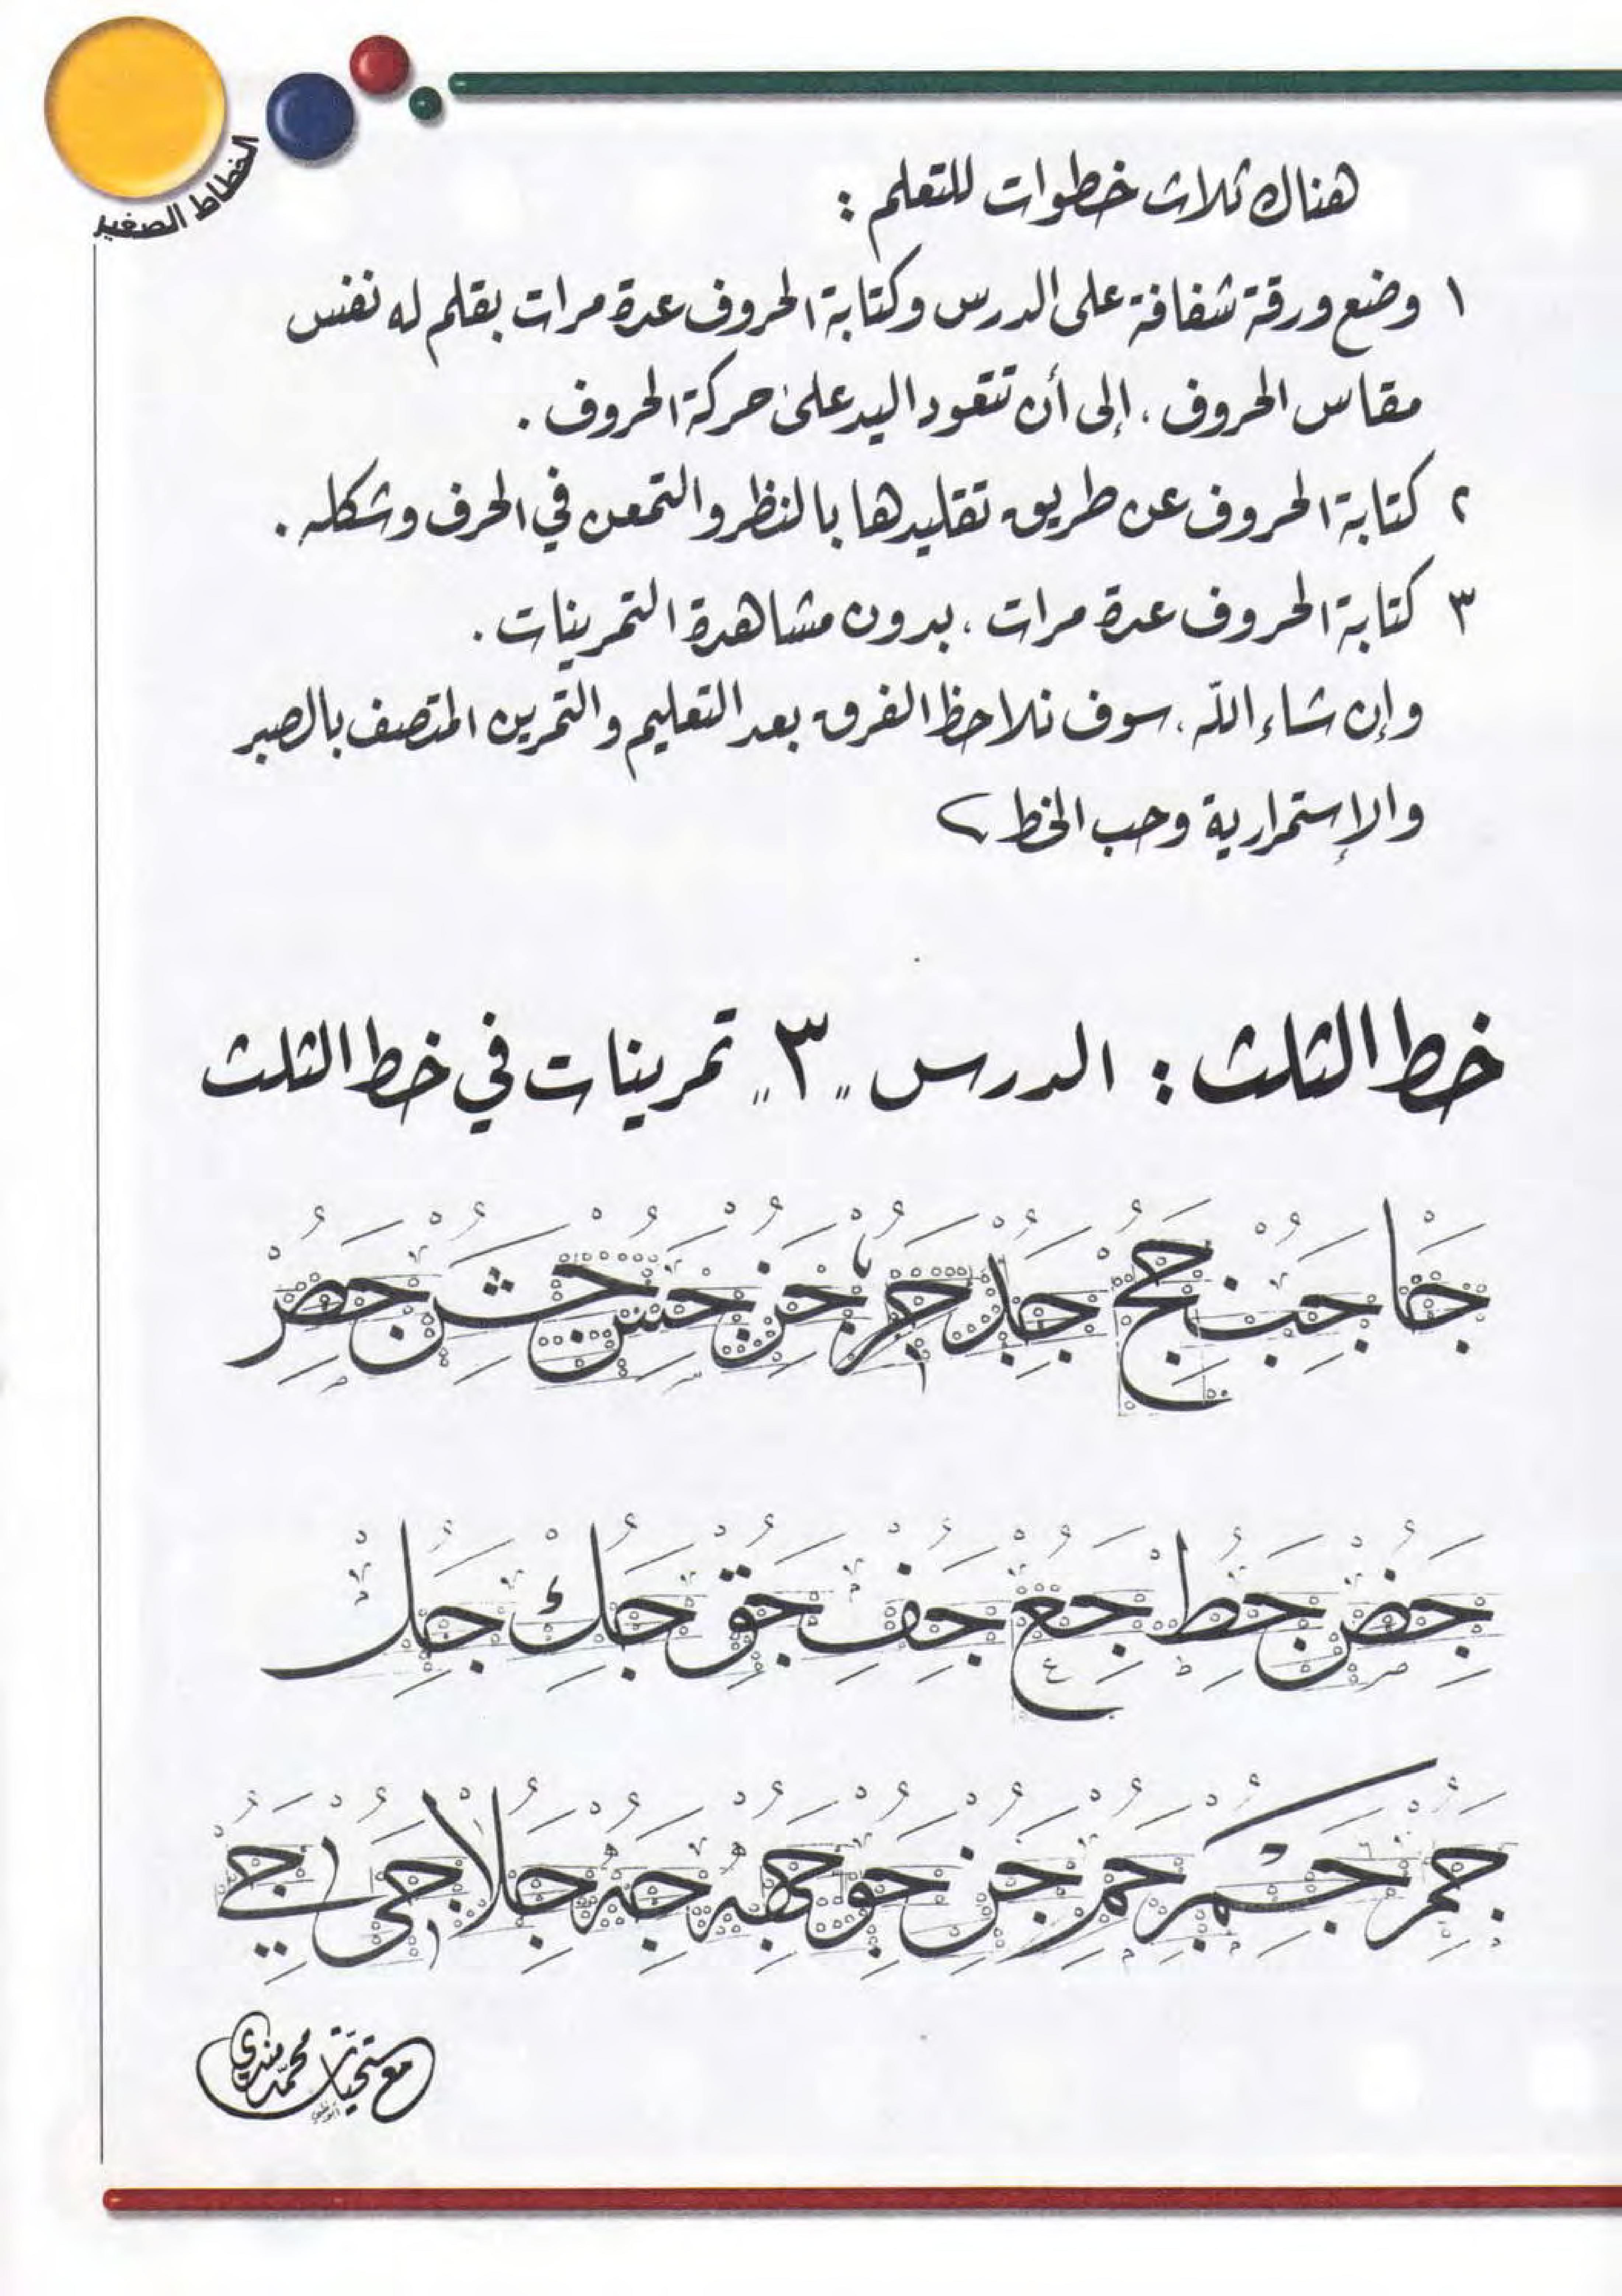 الخطاط الصغير
هناك ثلاث خطوات للتعلم :
١ وضع ورقة شفافة على الدرس وكتابة الحروف عدة مرات بقلم له نفس
مقاس الحروف ، إلى أن تتعود اليد على حركة الحروف .
٢ كتابة الحروف عن طريق تقليدها بالنظر والتمعن في الحرف وشكله .
٣ كتابة الحروف عدة مرات ، بدون مشاهدة التمرينات .
وإن شاء الله ، سوف نلاحظ الفرق بعد التعليم والتمرين المتصف بالصبر
والإستمرارية وحب الخط
خط الثلث : الدرس "٣" تمرينات في خط الثلث
جا جب جح جد جر جز جس جش جص
جض جط جع جف جق جك جل
جم جم جم جن جو جهه جه جلا جى جي
مع تحيات محمد مندي
أبوظبي